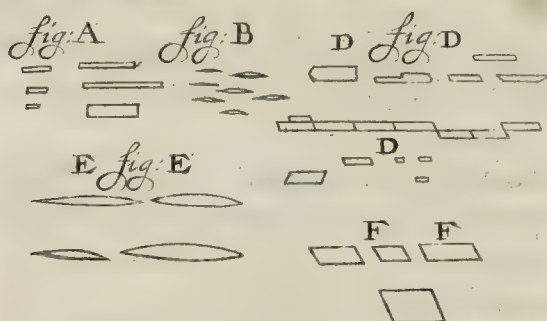 fig: A fig: B D fig: D
D
E fig: E
F F